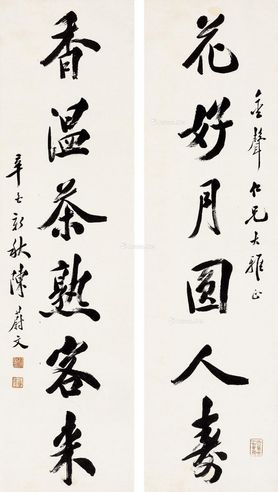 金聲仁兄大雅正
花好月圓人壽
香温茶熟客来
辛亥新秋陳蔚文